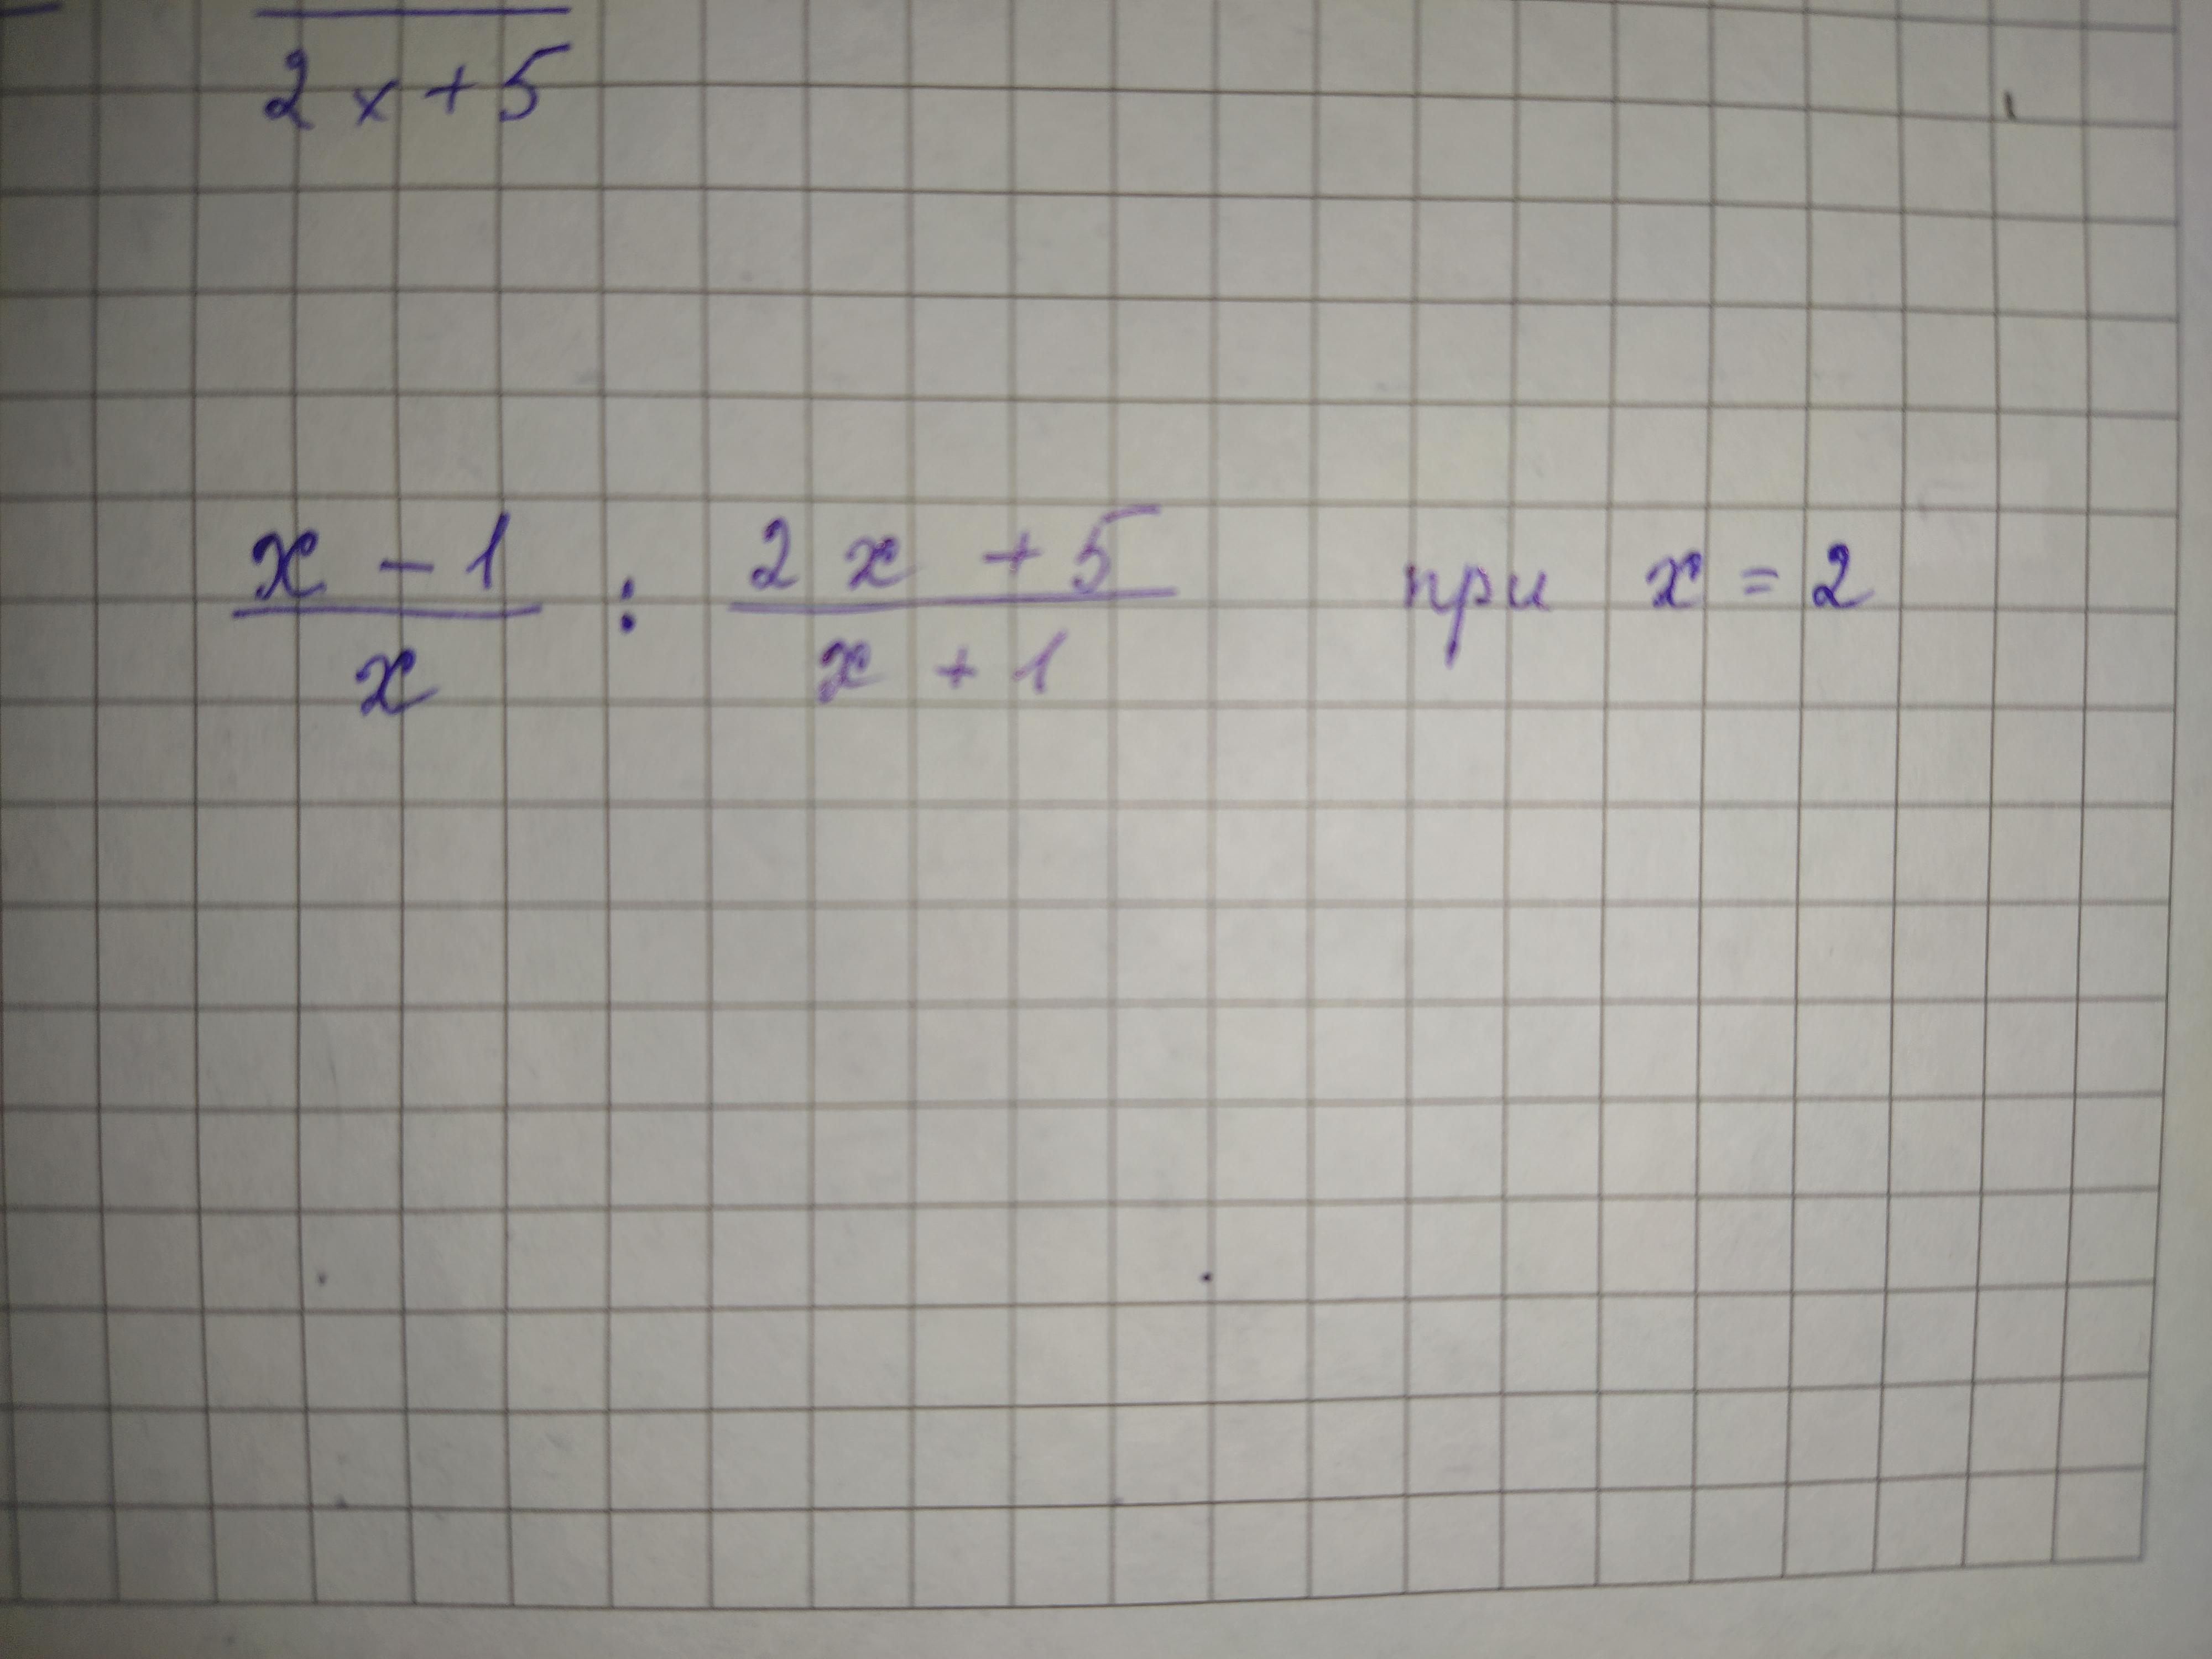 2x + 5
x - 1 / x : 2x + 5 / x + 1 при x = 2